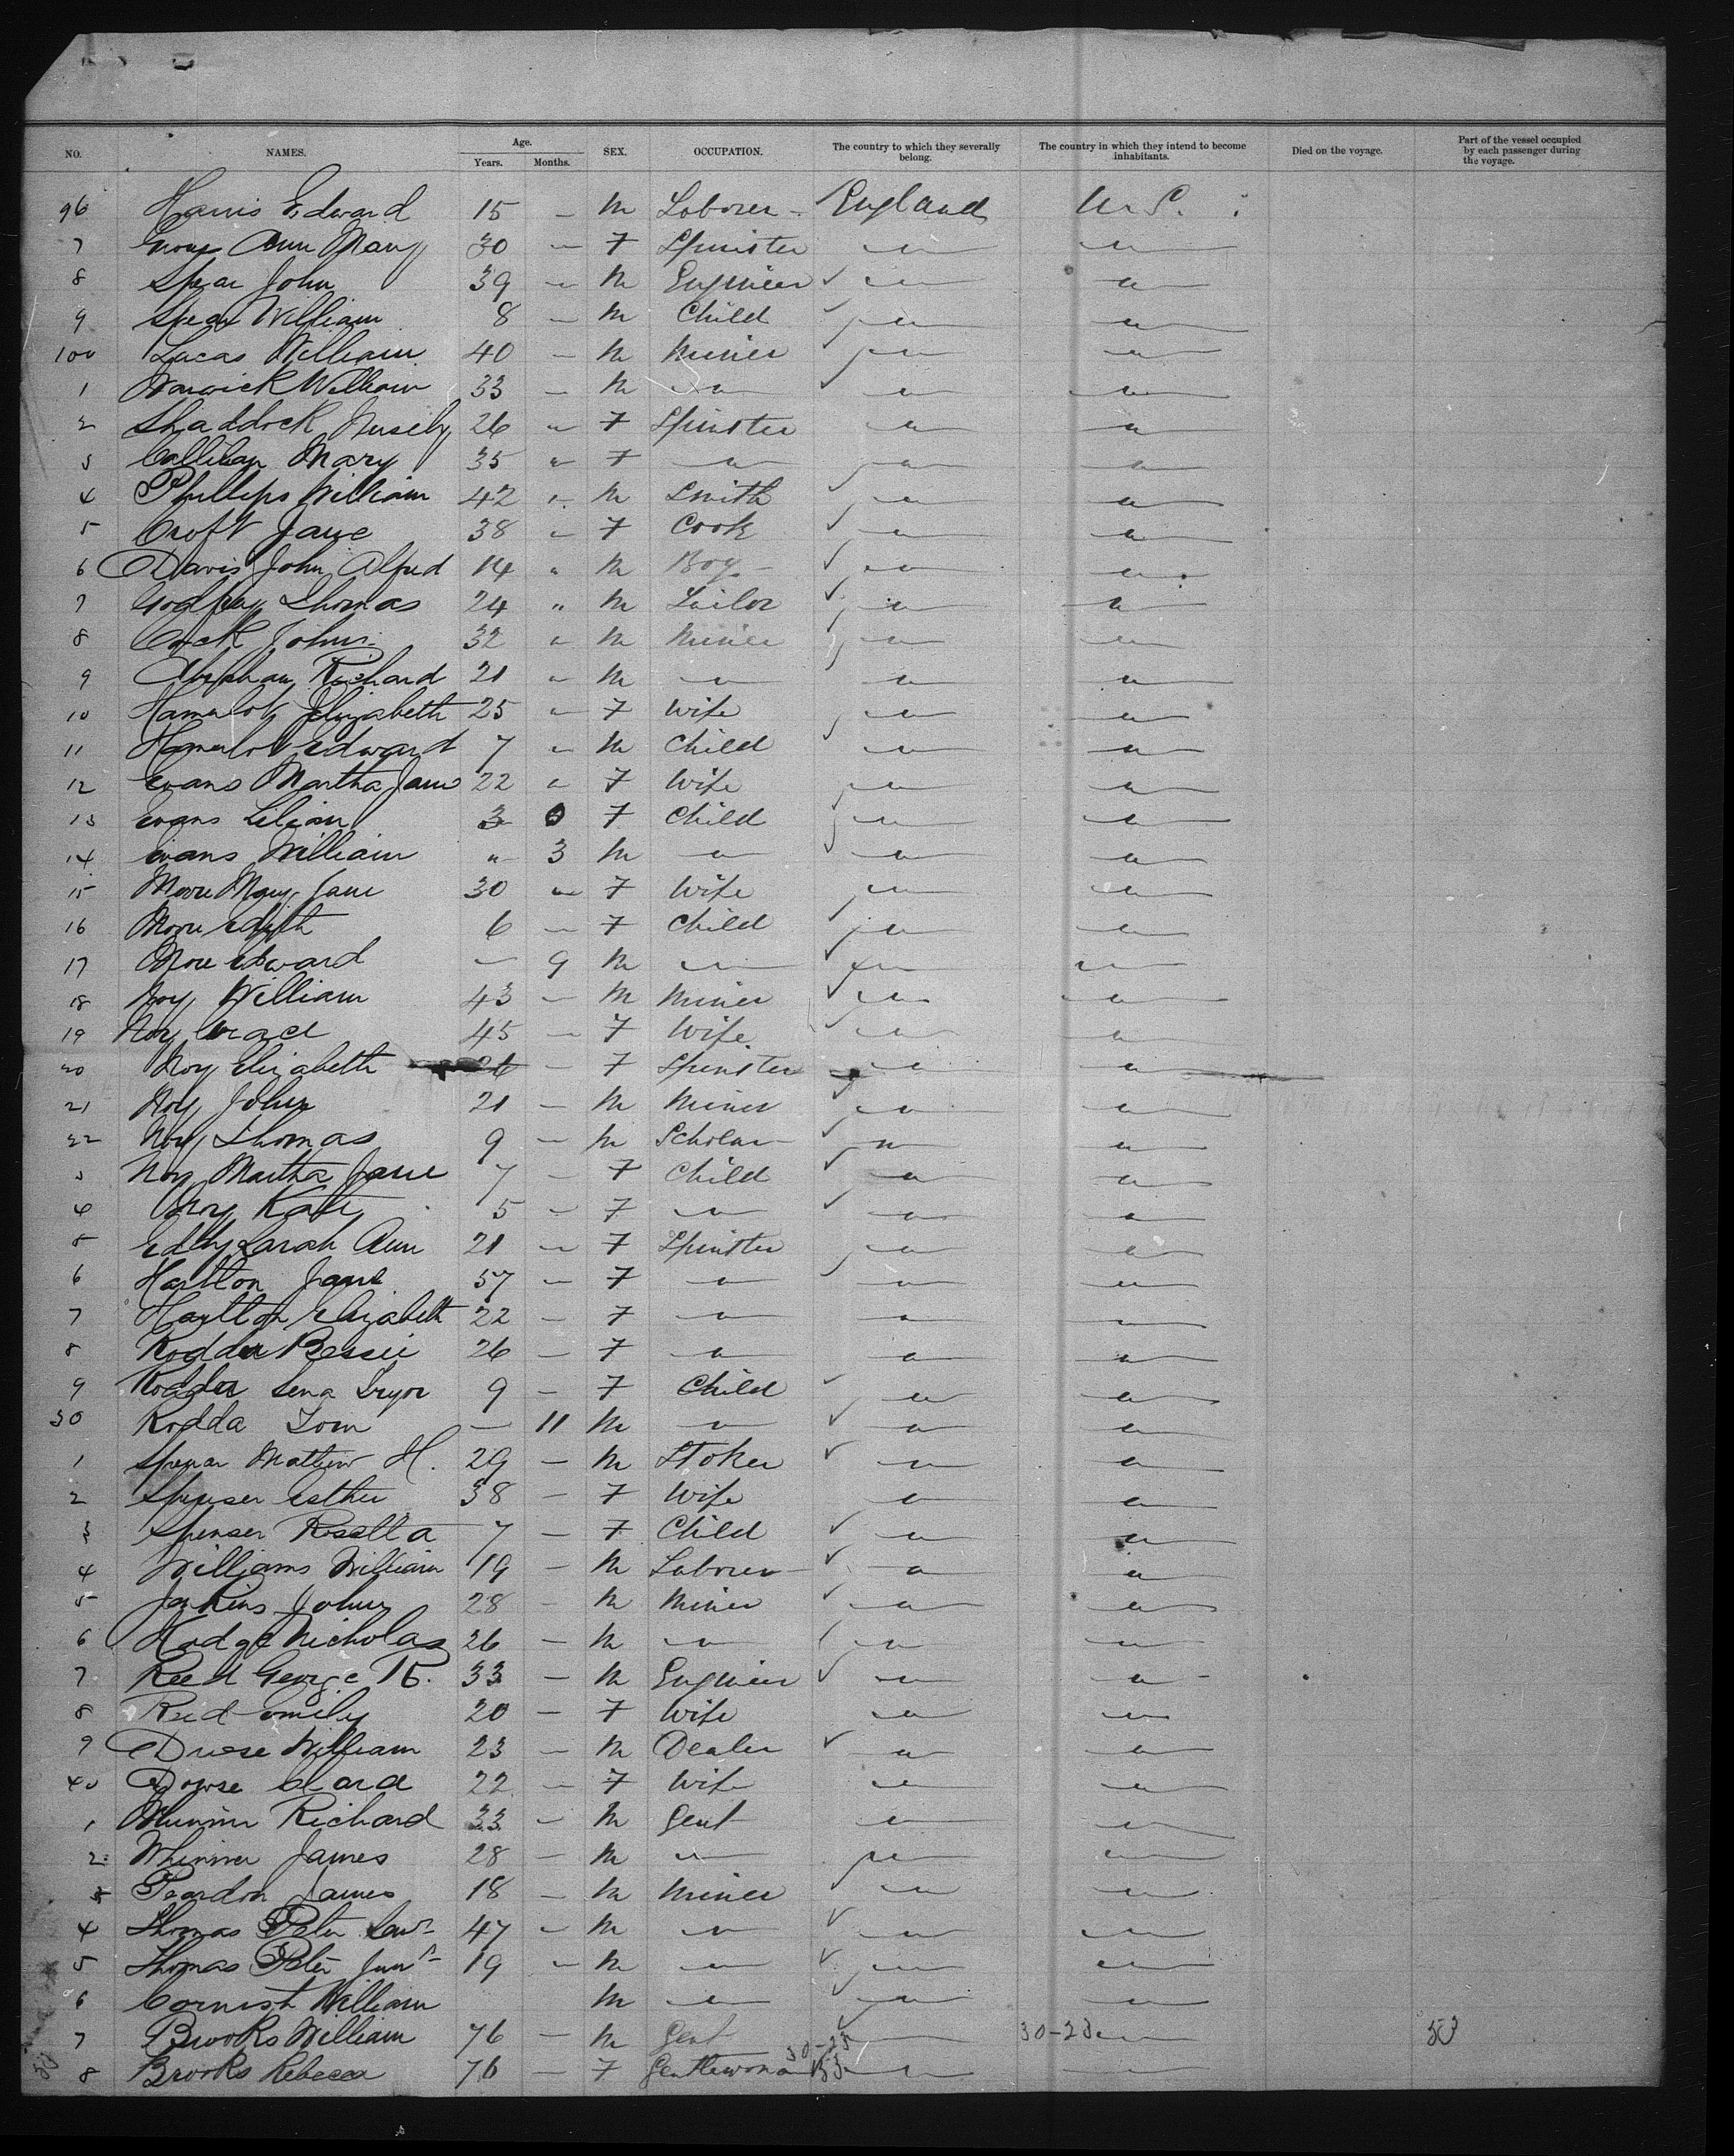 NO. NAMES. Age. Years. Months. SEX. OCCUPATION. The country to which they severally belong. The country in which they intend to become inhabitants. Died on the voyage. Part of the vessel occupied by each passenger during the voyage.
96 Harris Edward 15 - M Laborer England U.S.
7 Ann Mary 30 - F Spinster " "
8 Spear John 39 " M Engineer " "
9 Spear William 8 - M Child " "
100 Lucas William 40 - M Miner " "
1 Warwick William 33 - M " " "
2 Shaddock 26 " F Spinster " "
3 Mary 35 " F " " "
4 Phillips William 42 " M Smith " "
5 Croft Jane 38 " F Cook " "
6 Davis John Alfred 14 " M Boy " "
7 Godfrey Thomas 24 " M Tailor " "
8 Cock John 32 " M Miner " "
9 Abraham Richard 21 " M " " "
10 Elizabeth 25 " F Wife " "
11 Edward 7 " M Child " "
12 Evans Martha Jane 22 " F Wife " "
13 Evans Lilian 3 0 F Child " "
14 Evans William " 3 M " " "
15 Moore Mary Jane 30 " F Wife " "
16 Moore Edith 6 - F Child " "
17 More Edward - 9 M " " "
18 Noy William 43 - M Miner " "
19 Noy Grace 45 - F Wife " "
20 Noy Elizabeth - F Spinster " "
21 Noy John 21 - M Miner " "
22 Noy Thomas 9 - M Scholar " "
3 Noy Martha Jane 7 - F Child " "
4 Noy Kate 5 - F " " "
5 Eddy Sarah Ann 21 - F Spinster " "
6 Jane 57 - F " " "
7 Elizabeth 22 - F " " "
8 Rodda Bessie 26 - F " " "
9 Rodda Lena Pryor 9 - F Child " "
30 Rodda Tom - 11 M " " "
1 Mathew H. 29 - M Stoker " "
2 Spenser Esther 38 - F Wife " "
3 Spenser Rosetta 7 - F Child " "
4 Williams William 19 - M Laborer " "
5 Jenkins John 28 - M Miner " "
6 Hodge Nicholas 26 - M " " "
7 Reed George R. 33 - M Engineer " "
8 Reed Emily 20 - F Wife " "
9 William 23 - M Dealer " "
40 Dowse Clara 22 - F Wife " "
1 Richard 33 - M Gent " "
2 James 28 - M " " "
3 Peardon James 18 - M Miner " "
4 Thomas Peter Senr 47 - M " " "
5 Thomas Peter Junr 19 - M " " "
6 Cornish William M " " "
7 Brooks William 76 - M Gent " 30-23 " 53
8 Brooks Rebecca 76 - F Gentlewoman " "